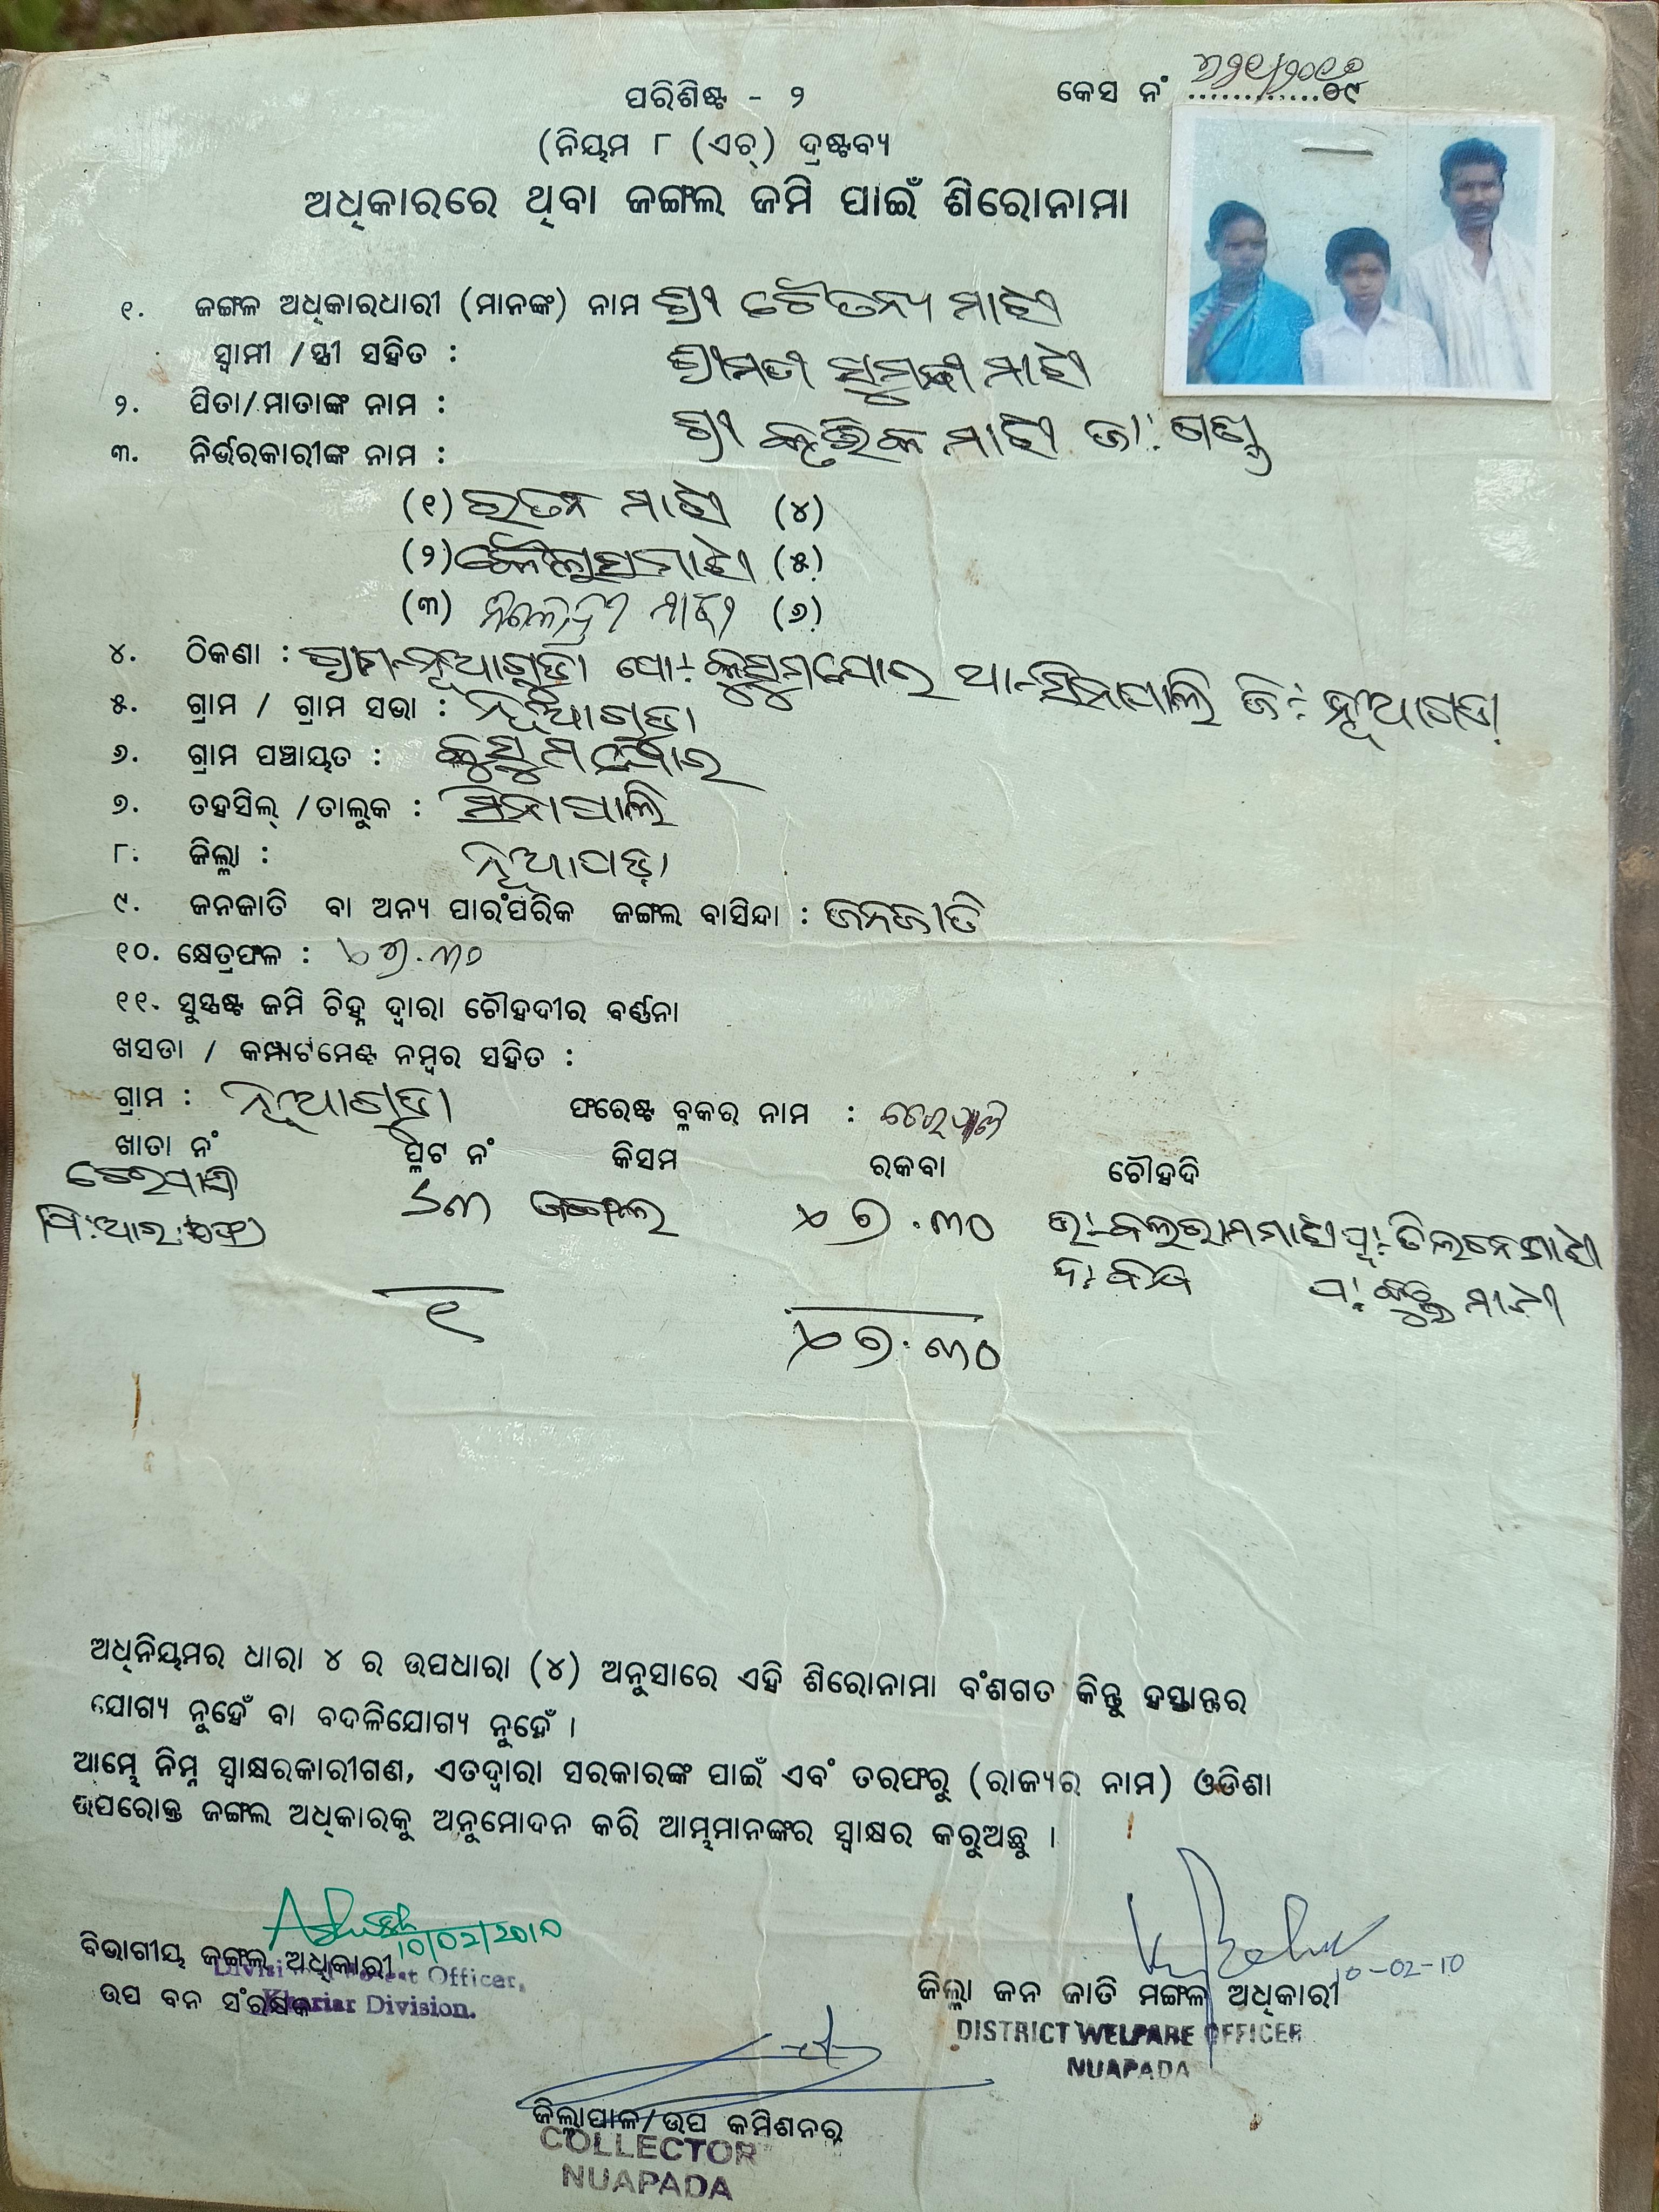 ପରିଶିଷ୍ଟ - ୨
କେସ ନଂ ............୦୯
(ନିୟମ ୮ (ଏଚ୍) ଦ୍ରଷ୍ଟବ୍ୟ
ଅଧିକାରରେ ଥିବା ଜଙ୍ଗଲ ଜମି ପାଇଁ ଶିରୋନାମା
୧. ଜଙ୍ଗଳ ଅଧିକାରଧାରୀ (ମାନଙ୍କ) ନାମ ଶ୍ରୀ ଚୈତନ୍ୟ ମାଝୀ
ସ୍ୱାମୀ /ସ୍ତ୍ରୀ ସହିତ : ଶ୍ରୀମତୀ ମାଝୀ
୨. ପିତା/ମାତାଙ୍କ ନାମ : ଶ୍ରୀ ମାଝୀ ଜା: ଗଣ୍ଡ
୩. ନିର୍ଭରକାରୀଙ୍କ ନାମ :
(୧) ରତନ ମାଝୀ (୪)
(୨) ମାଝୀ (୫)
(୩) ମାଝୀ (୬)
୪. ଠିକଣା : ଗ୍ରାମ-ନୂଆଗୁଡା ପୋ: କୁସୁମଯୋର ଥା-ସିନାପାଲି ଜି:
୫. ଗ୍ରାମ / ଗ୍ରାମ ସଭା : ନୂଆଗୁଡା
୬. ଗ୍ରାମ ପଞ୍ଚାୟତ : କୁସୁମଯୋର
୭. ତହସିଲ୍ /ତାଲୁକ : ସିନାପାଲି
୮. ଜିଲ୍ଲା : ନୂଆପଡ଼ା
୯. ଜନଜାତି ବା ଅନ୍ୟ ପାରଂପରିକ ଜଙ୍ଗଲ ବାସିନ୍ଦା : ଜନଜାତି
୧୦. କ୍ଷେତ୍ରଫଳ :
୧୧. ସୁସ୍ପଷ୍ଟ ଜମି ଚିହ୍ନ ଦ୍ୱାରା ଚୌହଦୀର ବର୍ଣ୍ଣନା
ଖସଡା / କମ୍ପାର୍ଟମେଣ୍ଟ ନମ୍ବର ସହିତ :
ଗ୍ରାମ : ନୂଆଗୁଡା ଫରେଷ୍ଟ ବ୍ଲକର ନାମ :
ଖାତା ନଂ ପ୍ଲଟ ନଂ କିସମ ରକବା ଚୌହଦି
ଜଙ୍ଗଲ ୪୭.୩୦ ଉ:-ବଲରାମ ମାଝୀ
୧ ୪୭.୩୦
ଅଧିନିୟମର ଧାରା ୪ ର ଉପଧାରା (୪) ଅନୁସାରେ ଏହି ଶିରୋନାମା ବଂଶଗତ କିନ୍ତୁ ହସ୍ତାନ୍ତର
ଯୋଗ୍ୟ ନୁହେଁ ବା ବଦଳିଯୋଗ୍ୟ ନୁହେଁ ।
ଆମ୍ଭେ ନିମ୍ନ ସ୍ୱାକ୍ଷରକାରୀଗଣ, ଏତଦ୍ୱାରା ସରକାରଙ୍କ ପାଇଁ ଏବଂ ତରଫରୁ (ରାଜ୍ୟର ନାମ) ଓଡିଶା
ଉପରୋକ୍ତ ଜଙ୍ଗଲ ଅଧିକାରକୁ ଅନୁମୋଦନ କରି ଆମ୍ଭମାନଙ୍କର ସ୍ୱାକ୍ଷର କରୁଅଛୁ ।
10/02/2010
ବିଭାଗୀୟ ଜଙ୍ଗଲ ଅଧିକାରୀ
Divisional Forest Officer,
ଉପ ବନ ସଂରକ୍ଷକ
Khariar Division.
10-02-10
ଜିଲ୍ଲା ଜନ ଜାତି ମଙ୍ଗଳ ଅଧିକାରୀ
DISTRICT WELFARE OFFICER
NUAPADA
ଜିଲ୍ଲାପାଳ/ଉପ କମିଶନର
COLLECTOR
NUAPADA